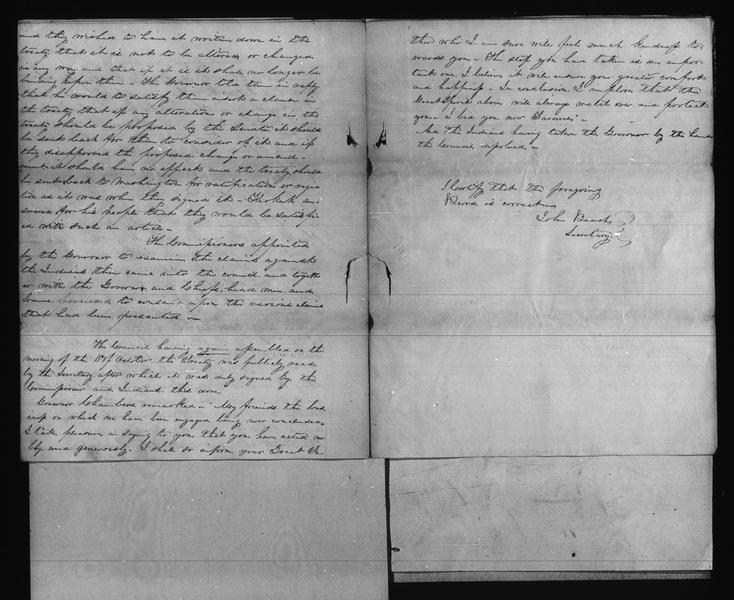 and they wished to have it written down in the
treaty that it is not to be altered or changed
in any way and that if it is it shall no longer be
binding upon them. The Governor told them in reply
that he would to satisfy them insert a clause in
the treaty that if any alteration or change in the
treaty should be proposed by the Senate it should
be sent back for them to consider of it and if
they disapproved the proposed change or amend-
ment it should have no effect and the treaty should
be sent back to Washington for ratification or rejec
tion as it was when they signed it. Keokuk an-
swered for his people that they would be satisfi
ed with such an article.
The Commissioners appointed
by the Governor to examine the claims against
the Indians then came into the council and togeth
er with the Governor and Chiefs, head men and
braves proceeded to consult upon the various claims
that had been presented
The Council having again assembled on the
morning of the 11th October the Treaty was publicly read
by the Secretary after which it was duly signed by the
Commissioner and Indians this done
Governor Chambers remarked "My friends the busi
ness on which we have been engaged being now concluded
I take pleasure in saying to you that you have acted no
bly and generously. I shall so inform your Great Fa
ther who I am sure will feel much kindness to-
wards you. The step you have taken is an impor-
tant one. I believe it will ensure your greater comfort
and happiness. In conclusion I implore that the
Great Spirit above will always watch over and protect
you. I bid you now Farewell.
the Indians having taken the Governor by the hand
the Council dissolved.
I certify that the foregoing
Record is correct
John Beach
Secretary